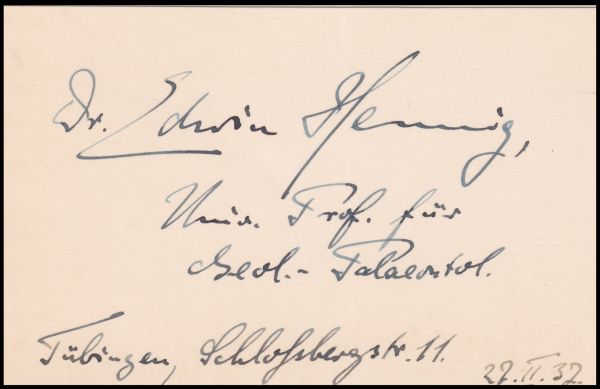 Dr. Edwin Hennig,
Univ. Prof. für
Geol.- Palaeontol.
Tübingen, Schloßbergstr. 11.
27. II. 37.